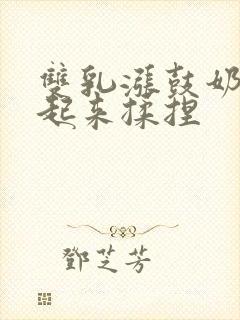 雙乳漲鼓奶
起来揉捏
鄧芝芳